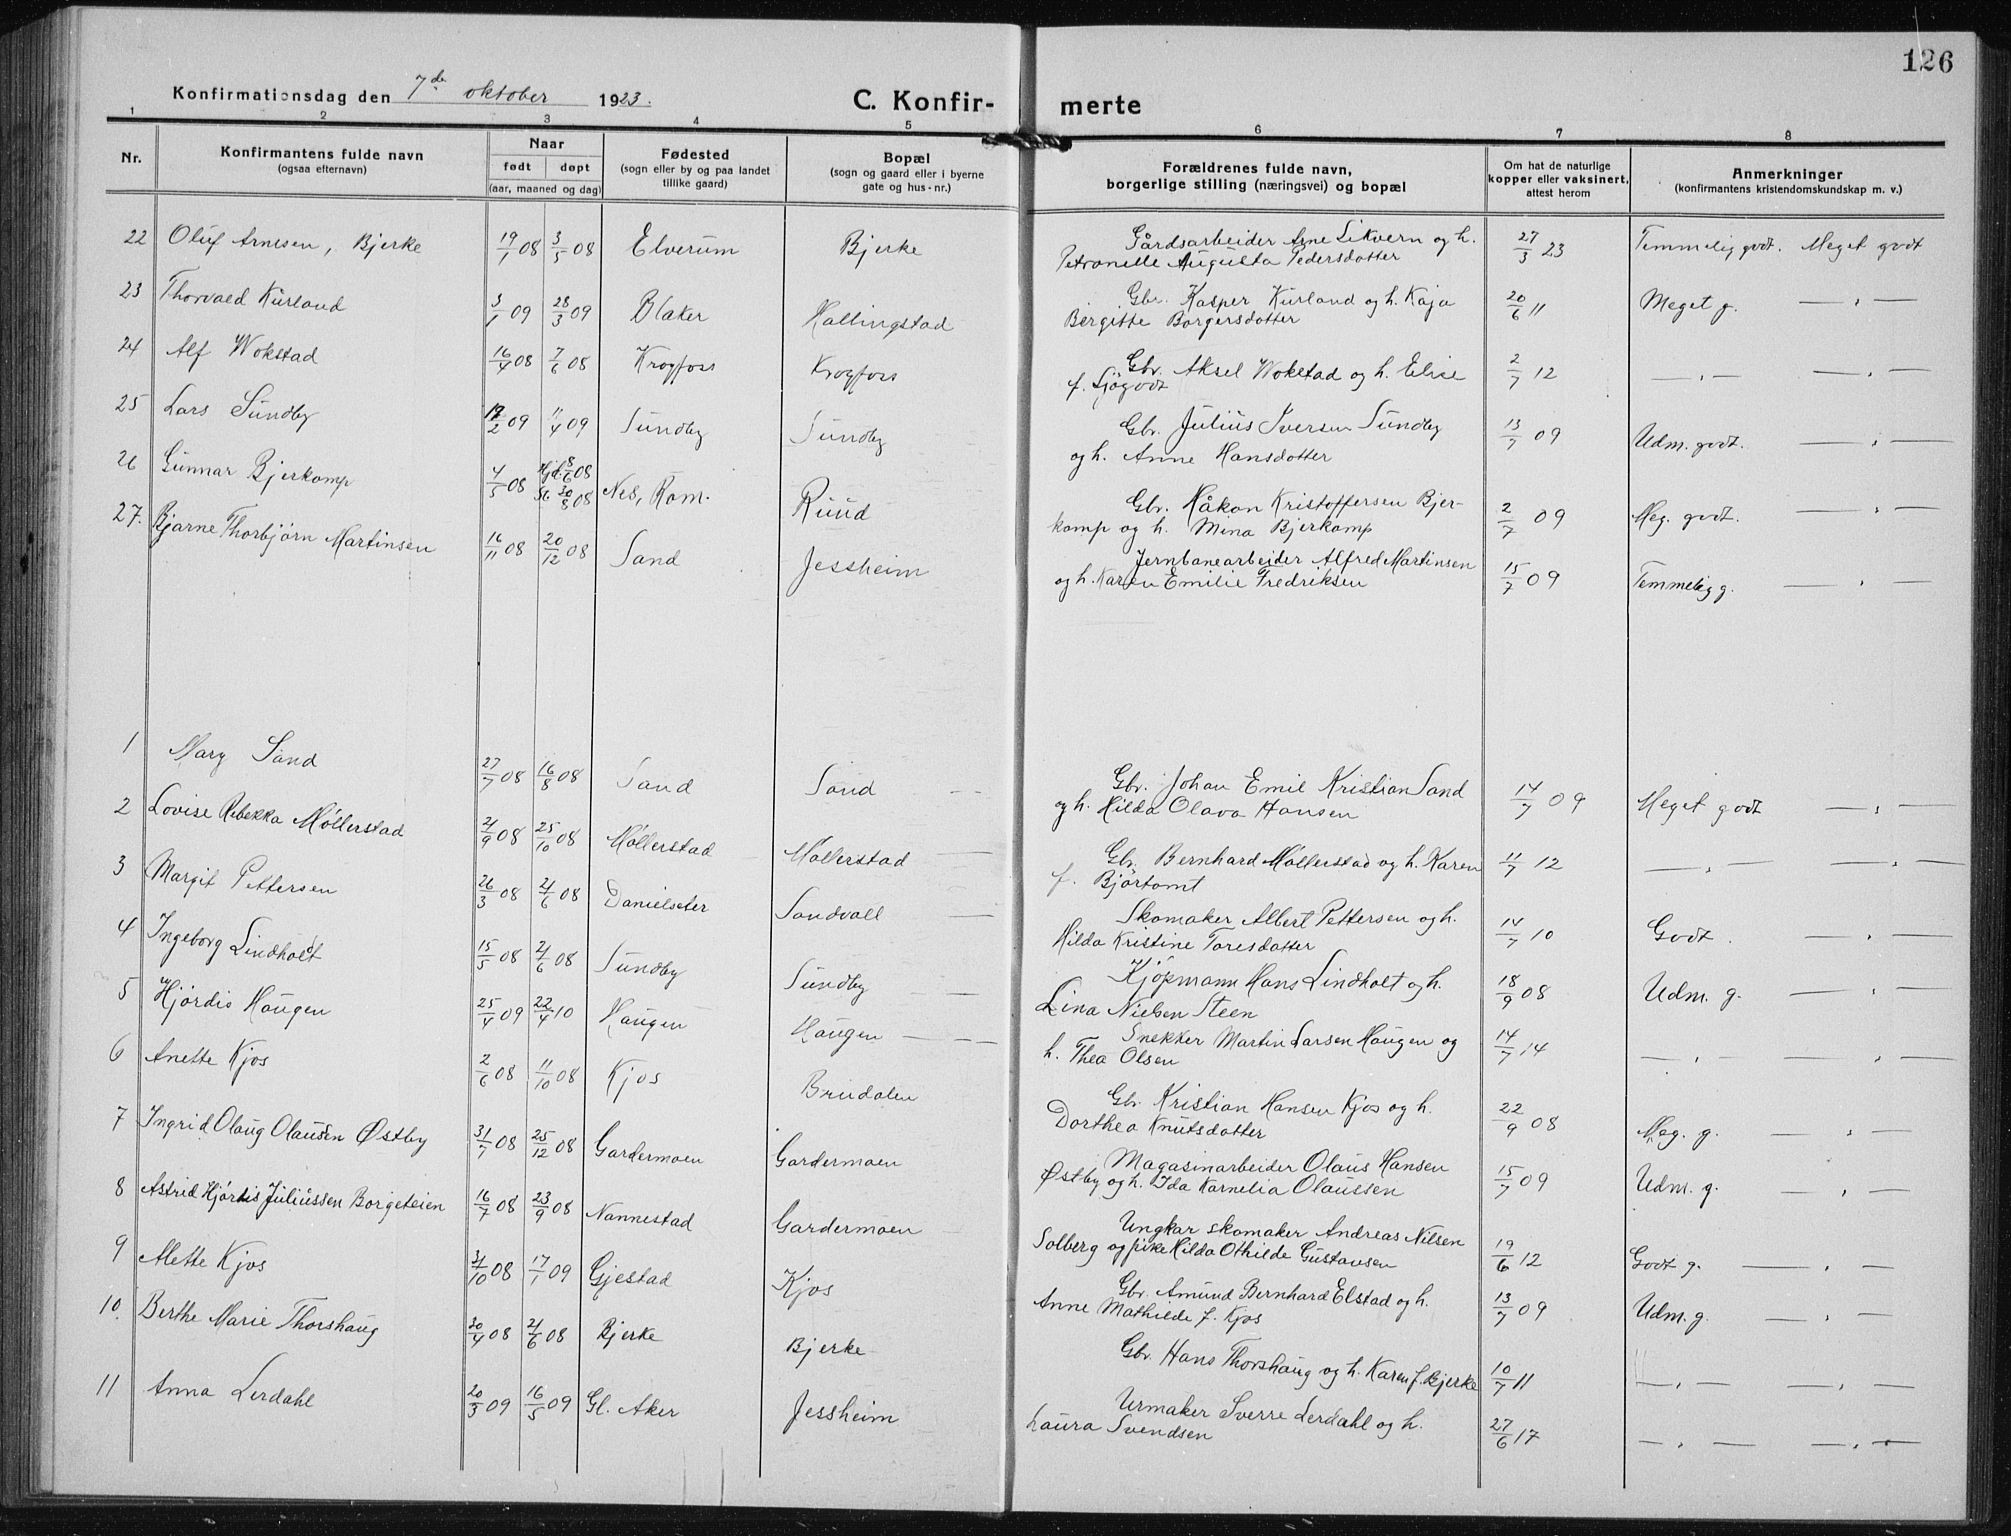 126
Konfirmationsdag den 7de oktober 1923.
C. Konfir-
merte
1 2 3 4 5 6 7 8
Nr. Konfirmantens fulde navn (ogsaa efternavn) Naar født døpt (aar, maaned og dag) Fødested (sogn eller by og paa landet tillike gaard) Bopæl (sogn og gaard eller i byerne gate og hus-nr.) Forældrenes fulde navn, borgerlige stilling (næringsvei) og bopæl Om hat de naturlige kopper eller vaksinert, attest herom Anmerkninger (konfirmantens kristendomskundskap m. v.)
22 Oluf Arnesen, Bjerke 19/1 08 3/5 08 Elverum Bjerke Gårdsarbeider Arne Sikvern og h. 27/3 23 Temmelig godt. Meget godt
Petronelle Augusta Pedersdotter
23 Thorvald Kurland 3/1 09 28/3 09 Blaker Hallingstad Gbr. Kasper Kurland og h. Kaja 20/6 11 Meget g. — " —
Bergitte Borgersdotter
24 Alf Wokstad 16/4 08 7/6 08 Krogfoss Krogfoss Gbr. Aksel Wokstad og h. Elise 2/7 12 — " — — " —
f. Sjøgodt
25 Lars Sundby 12/2 09 11/4 09 Sundby Sundby Gbr. Julius Iversen Sundby 13/7 09 Udm. godt. — " —
og h. Anne Hansdotter
26 Gunnar Bjerkamp 4/5 08 Hjd. 8/6 08 St. 30/8 08 Nes, Rom. Ruud Gbr. Håkon Kristoffersen Bjer- 2/7 09 Meg. godt. — " —
kamp og h. Mina Bjerkamp
27. Bjarne Thorbjørn Martinsen 16/11 08 20/12 08 Sand Jessheim Jernbanearbeider Alfred Martinsen 15/7 09 Temmelig g. — " —
og h. Karen Emilie Fredriksen
1 Mary Sand 27/7 08 16/8 08 Sand Sand Gbr. Johan Emil Kristian Sand 14/7 09 Meget godt — " —
og h. Hilda Olava Hansen
2 Lovise Rebekka Møllerstad 21/9 08 25/10 08 Møllerstad Møllerstad Gbr. Bernhard Møllerstad og h. Karen 11/7 12 — " — — " —
f. Bjørtomt
3 Margit Pettersen 26/3 08 21/6 08 Danielseter Sandvall Skomaker Albert Pettersen og h. 14/7 10 Godt. — " —
Hilda Kristine Toresdatter
4 Ingeborg Lindholt 15/5 08 21/6 08 Sundby Sundby Kjøpmann Hans Lindholt og h. 18/9 08 Udm. g. — " —
Lina Nielsen Steen
5 Hjørdis Haugen 25/4 09 22/4 10 Haugen Haugen Snekker Martin Larsen Haugen og 14/7 14 — " — — " —
h. Thea Olsen
6 Anette Kjos 2/6 08 11/10 08 Kjos Brudalen Gbr. Kristian Hansen Kjos og h. 22/9 08 Meg. g. — " —
Dorthea Knutsdatter
7 Ingrid Olaug Olaussen Østby 31/7 08 25/12 08 Gardermoen Gardermoen Magasinarbeider Olaus Hansen 15/7 09 Udm. g. — " —
Østby og h. Ida Karnelia Olaussen
8 Astrid Hjørdis Juliussen Borgeteien 16/7 08 23/9 08 Nannestad Gardermoen Ungkar skomaker Andreas Nilsen 19/6 12 Godt g. — " —
Solberg og pike Hilda Othilde Gustavsen
9 Alette Kjos 31/10 08 17/1 09 Gjestad Kjos Gbr. Amund Bernhard Elstad og h. 13/7 09 Udm. g. — " —
Anne Mathilde f. Kjos
10. Berthe Marie Thorshaug 30/4 08 21/6 08 Bjerke Bjerke Gbr. Hans Thorshaug og h. Karen f. Bjerke 10/7 11 — " — — " —
11 Anna Lerdahl 20/3 09 16/5 09 Gl. Aker Jessheim Urmaker Sverre Lerdahl og h. 27/6 17 — " — — " —
Laura Svendsen